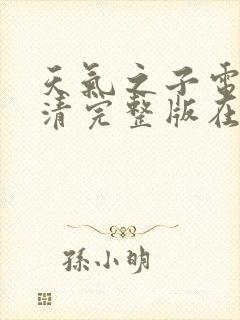 天氣之子電
清完整版在
孫小明